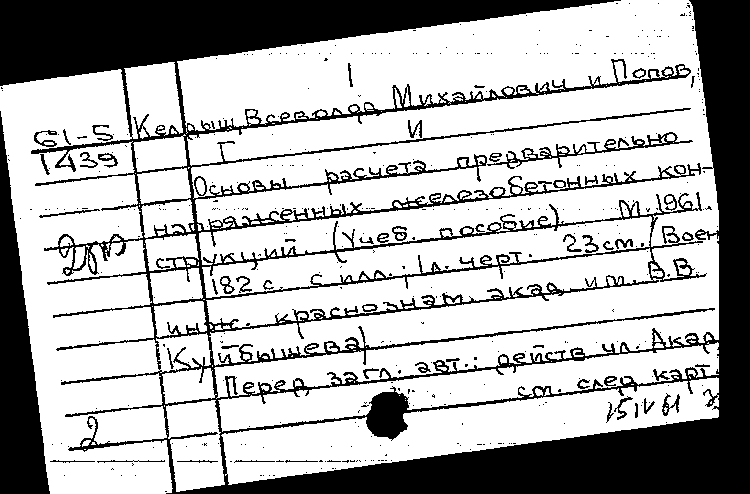 1
61-5 Келдыш, Всеволод Михайлович и Попов,
1439 Г И
Основы расчета предварительно
напряженных железобетонных кон-
струкций. (Учеб. пособие). М. 1961.
182 с. с илл.; 1 л. черт. 23 см. (Воен
инж. краснознам. акад. им. В.В.
Куйбышева)
Перед загл. авт.: действ чл. Акад
см. след карт.
2 15 IV 61